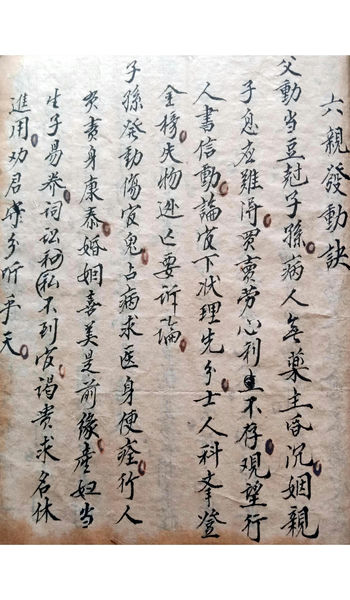 六親發動訣
父動当豆尅子孫病人無藥主昏沉姻親
子息应難得買賣劳心利主不存观望行
人書信動論官下状理先分士人科峯登
金榜失物逃亡要訴論
子孫發動傷官鬼占病求医身便痊行人
買賣身康泰婚姻喜美是前缘產妇当
生子易养词訟和私不到官谒贵求名休
進用劝君守分听乎天